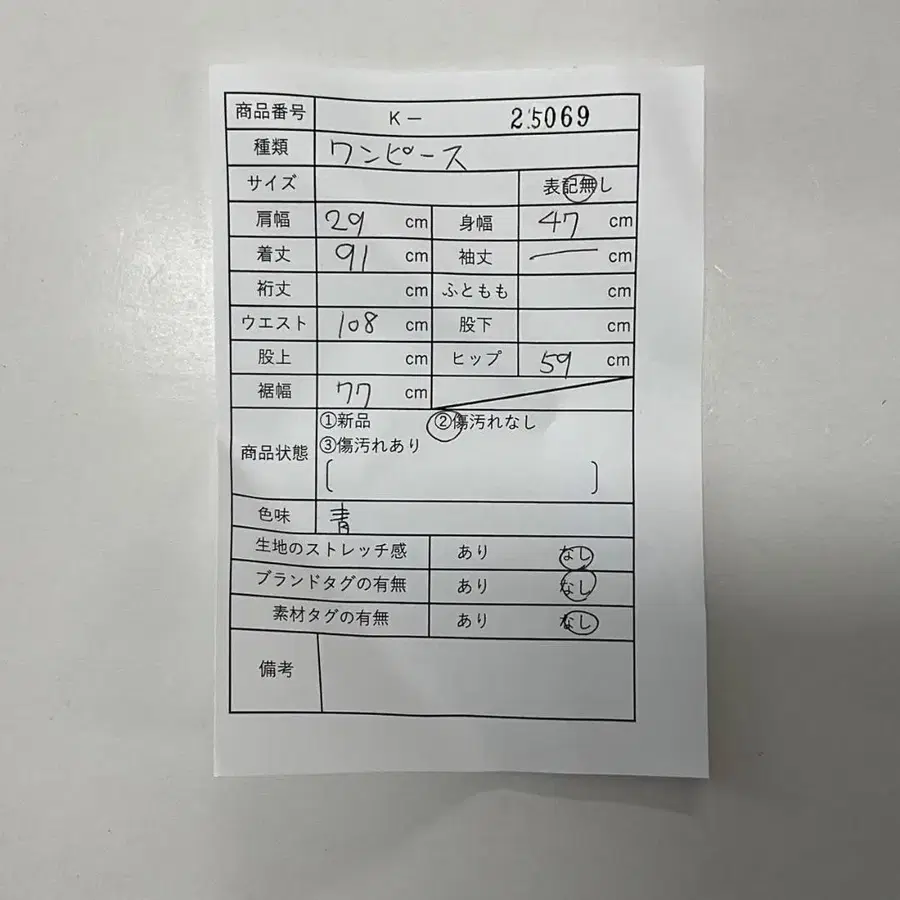 商品番号 K- 25069
種類 ワンピース
サイズ 表記無し
肩幅 29 cm 身幅 47 cm
着丈 91 cm 袖丈 ー cm
裄丈 cm ふともも cm
ウエスト 108 cm 股下 cm
股上 cm ヒップ 59 cm
裾幅 77 cm
商品状態 ①新品 ②傷汚れなし
③傷汚れあり
[ ]
色味 青
生地のストレッチ感 あり なし
ブランドタグの有無 あり なし
素材タグの有無 あり なし
備考